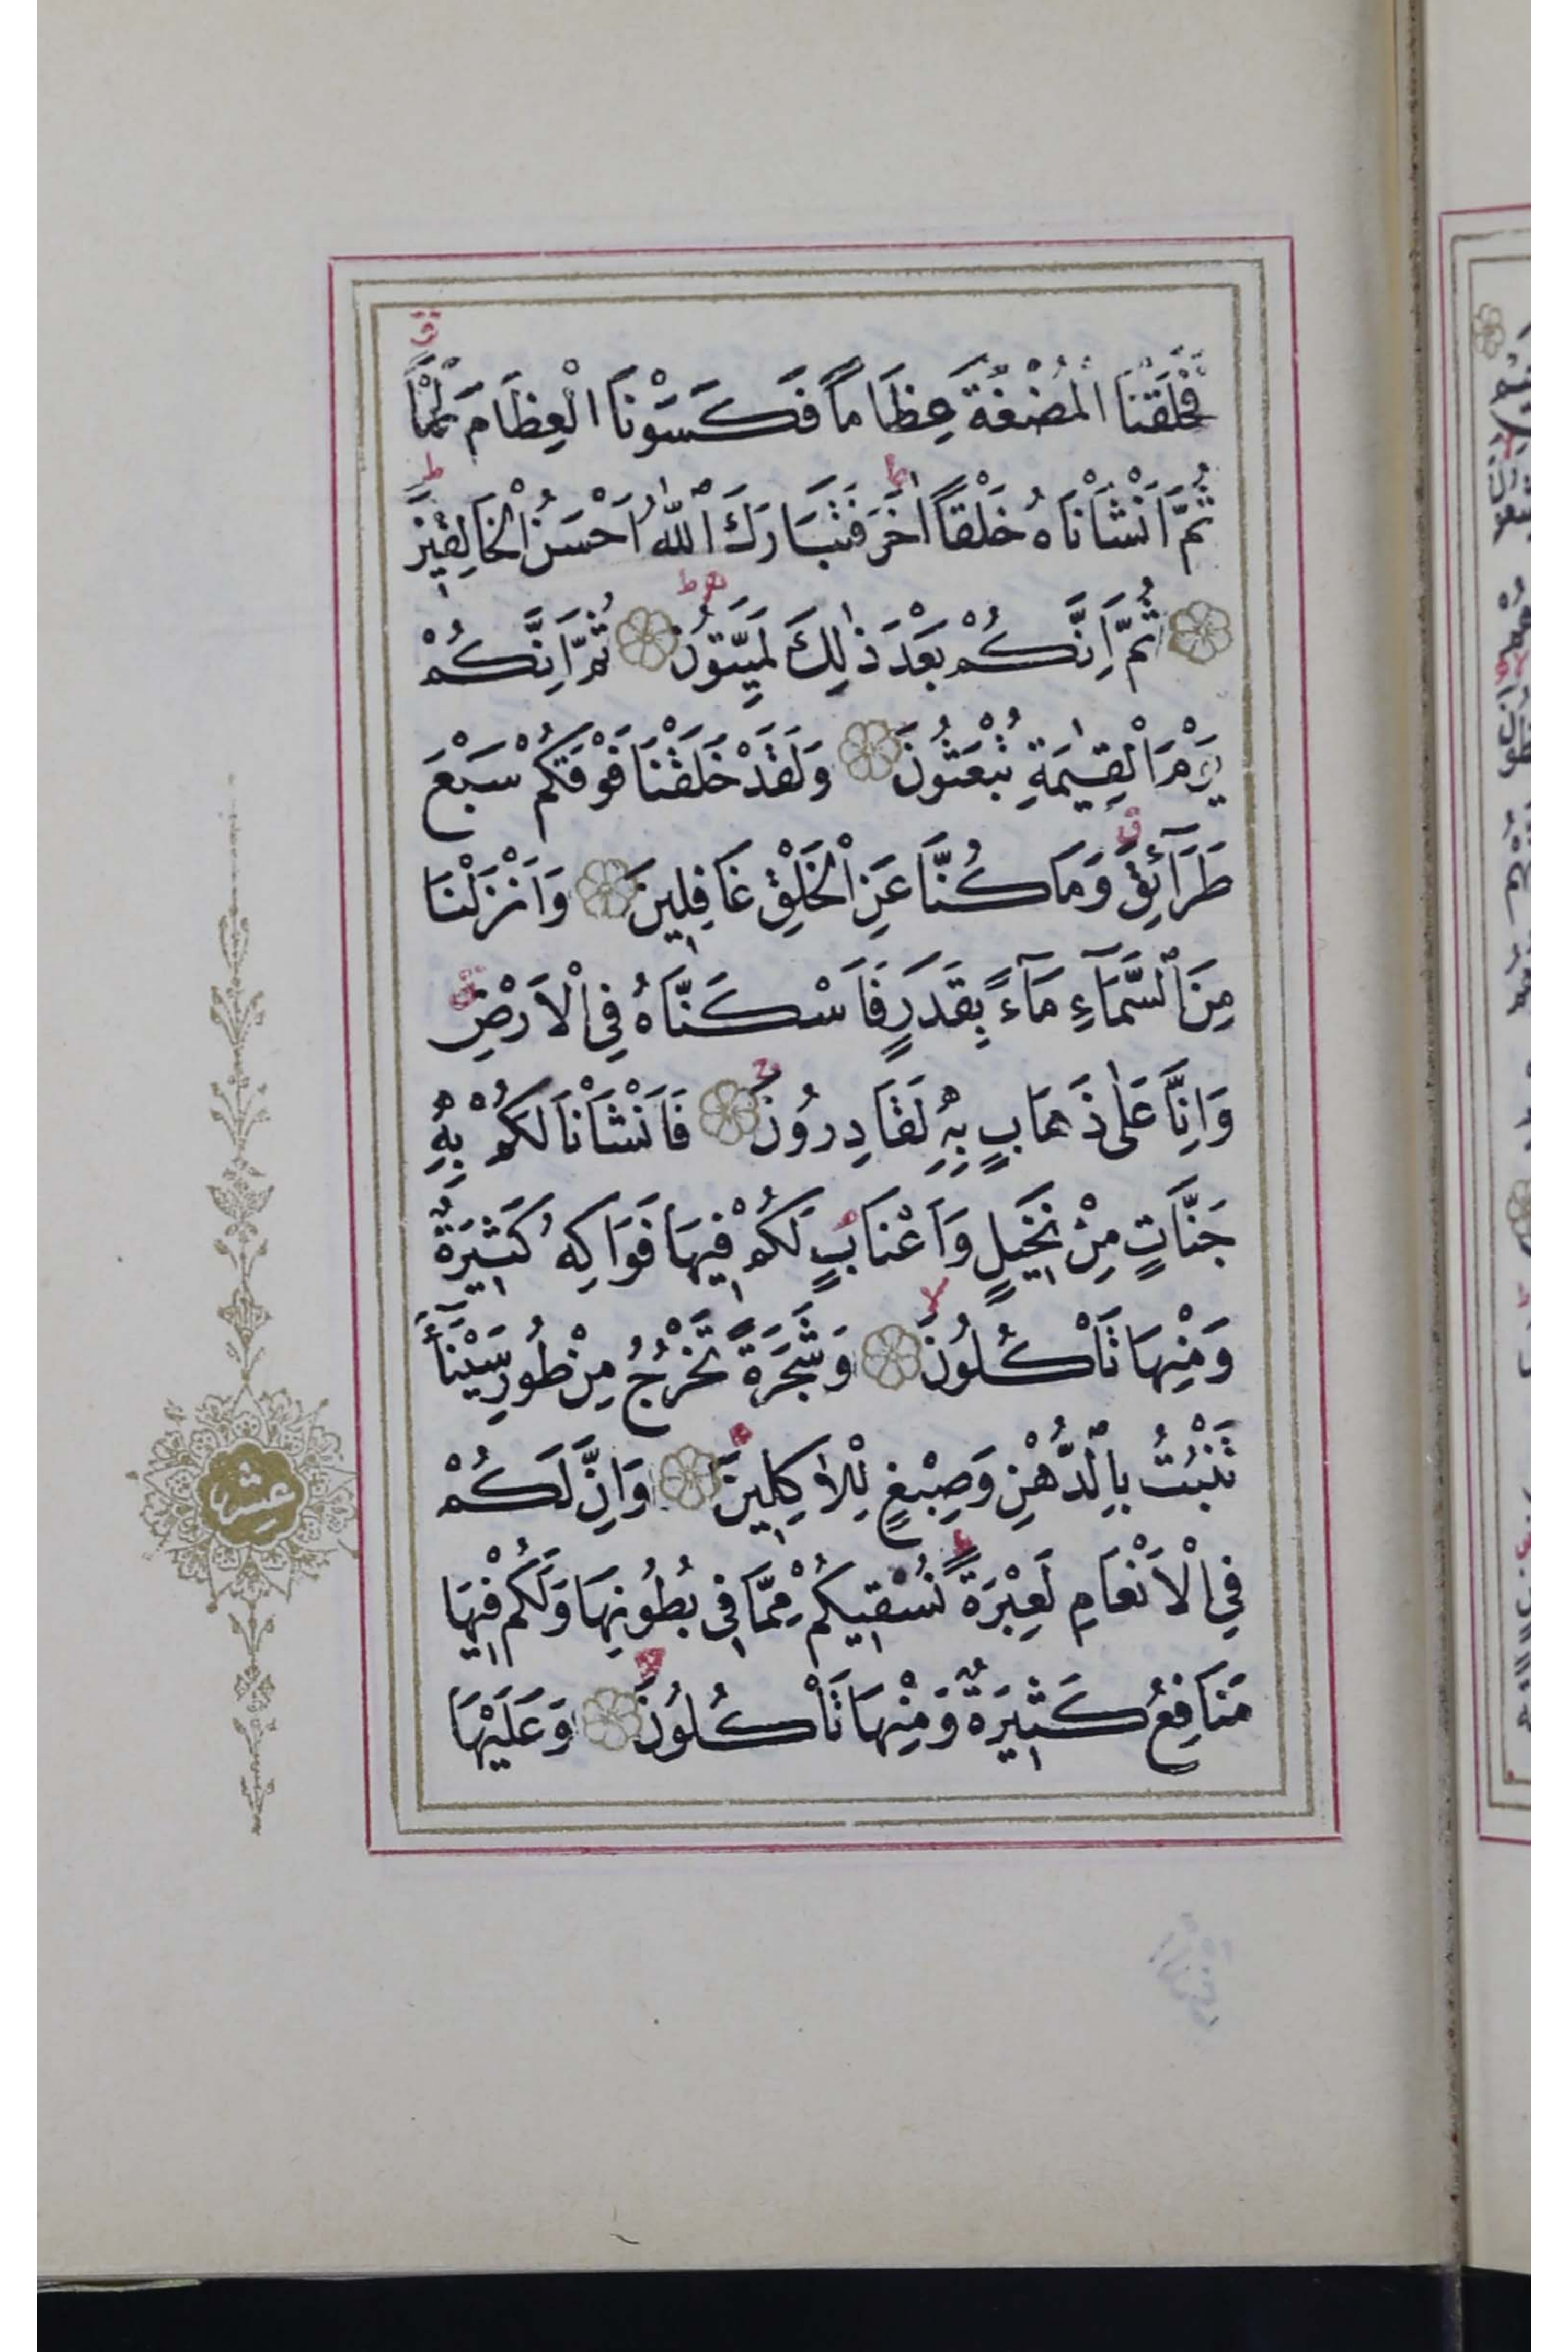 فَخَلَقْنَا الْمُضْغَةَ عِظَاماً فَكَسَوْنَا الْعِظَامَ لَحْماً
ثُمَّ اَنْشَاْنَاهُ خَلْقاً اٰخَرَ فَتَبَارَكَ اللّٰهُ اَحْسَنُ الْخَالِقِينَ
ثُمَّ اِنَّكُمْ بَعْدَ ذٰلِكَ لَمَيِّتُونَ ثُمَّ اِنَّكُمْ
يَوْمَ الْقِيٰمَةِ تُبْعَثُونَ وَلَقَدْ خَلَقْنَا فَوْقَكُمْ سَبْعَ
طَرَآئِقَ وَمَا كُنَّا عَنِ الْخَلْقِ غَافِلِينَ وَاَنْزَلْنَا
مِنَ السَّمَآءِ مَآءً بِقَدَرٍ فَاَسْكَنَّاهُ فِي الْاَرْضِ
وَاِنَّا عَلٰى ذَهَابٍ بِهِ لَقَادِرُونَ فَاَنْشَاْنَا لَكُمْ بِهِ
جَنَّاتٍ مِنْ نَخِيلٍ وَاَعْنَابٍ لَكُمْ فِيهَا فَوَاكِهُ كَثِيرَةٌ
وَمِنْهَا تَاْكُلُونَ وَشَجَرَةً تَخْرُجُ مِنْ طُورِ سَيْنَآءَ
تَنْبُتُ بِالدُّهْنِ وَصِبْغٍ لِلْاٰكِلِينَ وَاِنَّ لَكُمْ
فِي الْاَنْعَامِ لَعِبْرَةً نُسْقِيكُمْ مِمَّا فِي بُطُونِهَا وَلَكُمْ فِيهَا
مَنَافِعُ كَثِيرَةٌ وَمِنْهَا تَاْكُلُونَ وَعَلَيْهَا
عشر